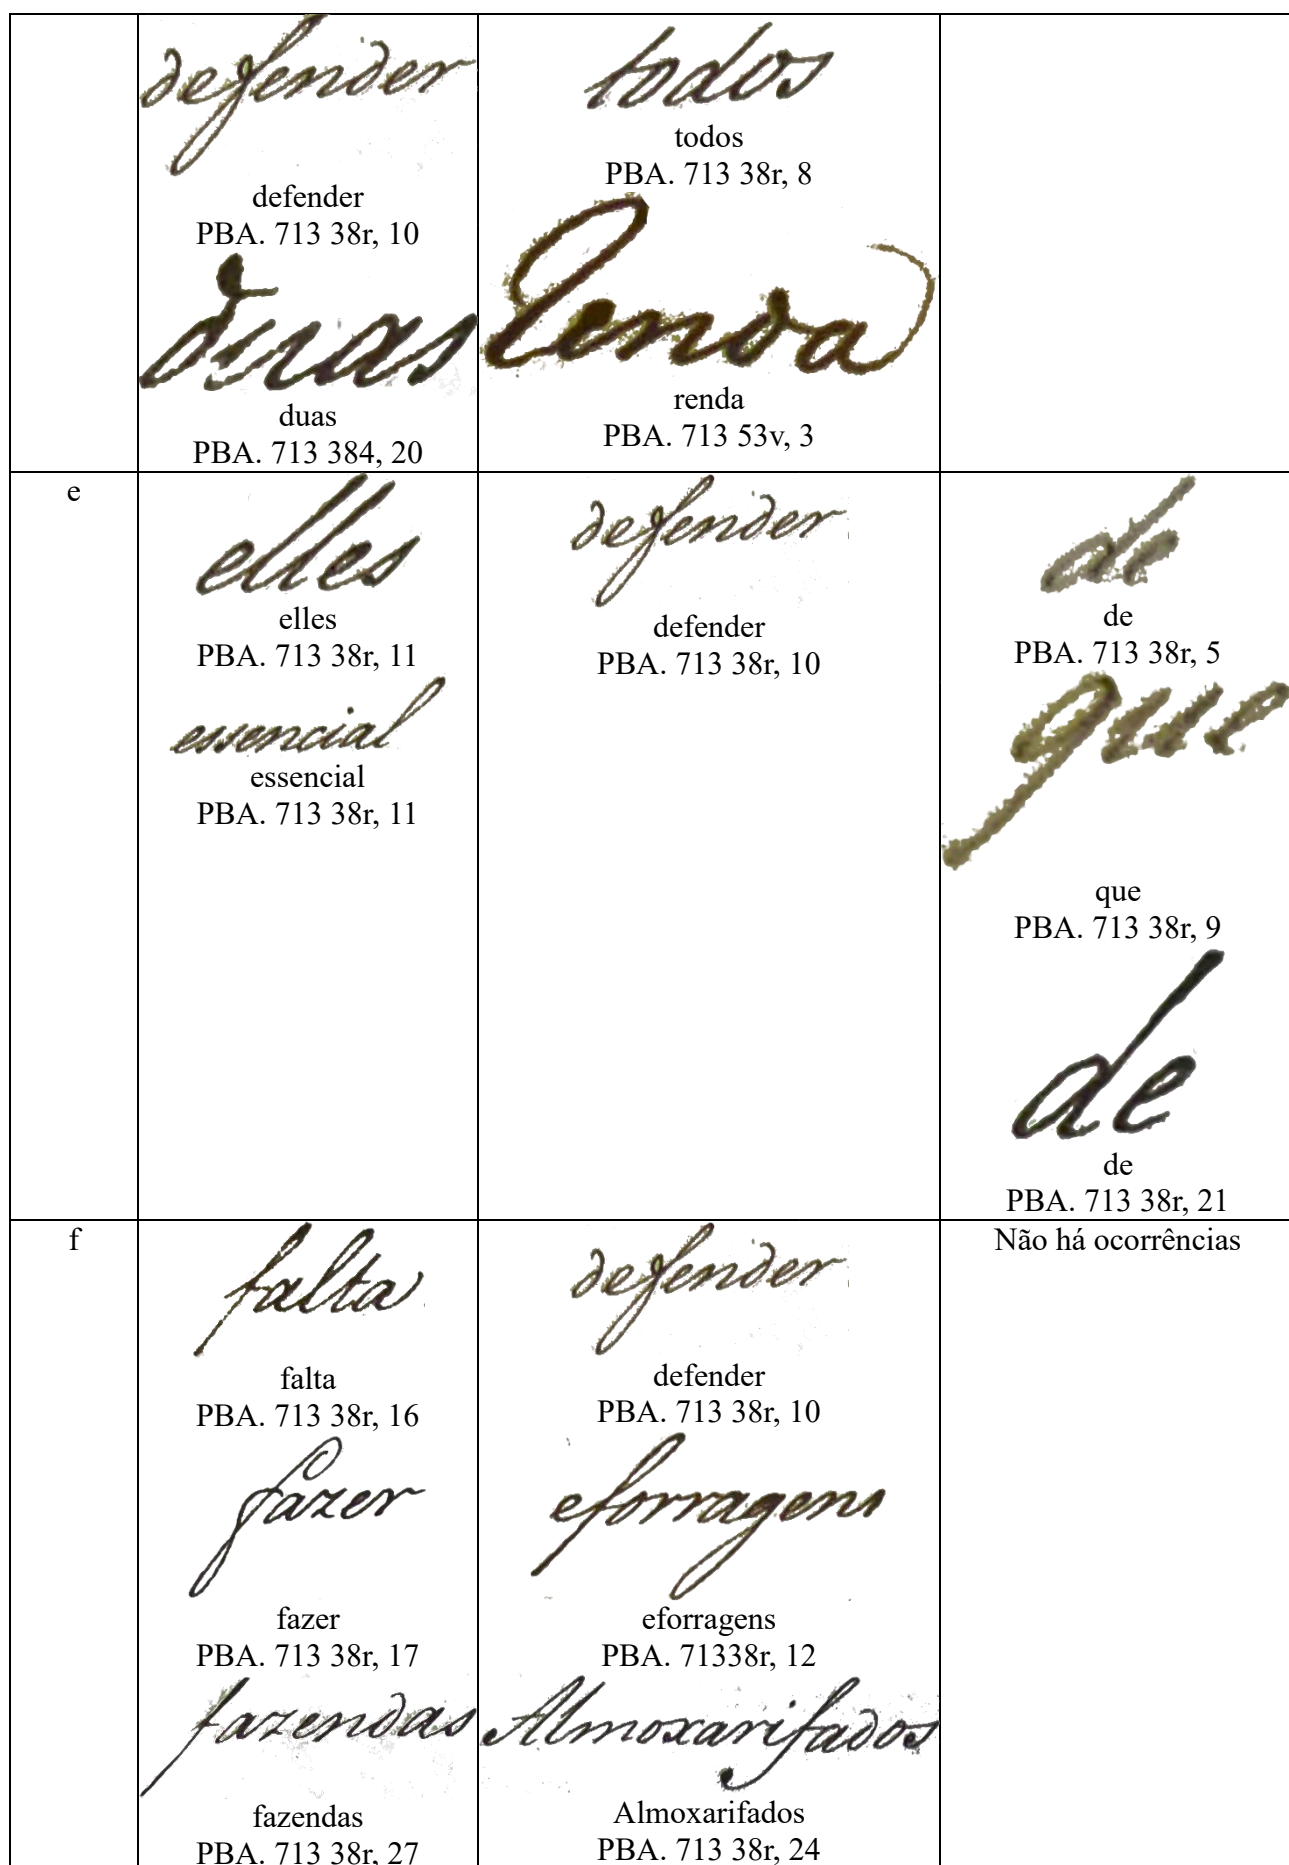 defender
todos
todos
PBA. 713 38r, 8
defender
PBA. 713 38r, 10
duas
renda
duas
PBA. 713 384, 20
renda
PBA. 713 53v, 3
e
elles
elles
PBA. 713 38r, 11
essencial
essencial
PBA. 713 38r, 11
defender
defender
PBA. 713 38r, 10
de
de
PBA. 713 38r, 5
que
que
PBA. 713 38r, 9
de
de
PBA. 713 38r, 21
f
falta
falta
PBA. 713 38r, 16
fazer
fazer
PBA. 713 38r, 17
fazendas
fazendas
PBA. 713 38r, 27
defender
defender
PBA. 713 38r, 10
eforragens
eforragens
PBA. 71338r, 12
Almoxarifados
Almoxarifados
PBA. 713 38r, 24
Não há ocorrências